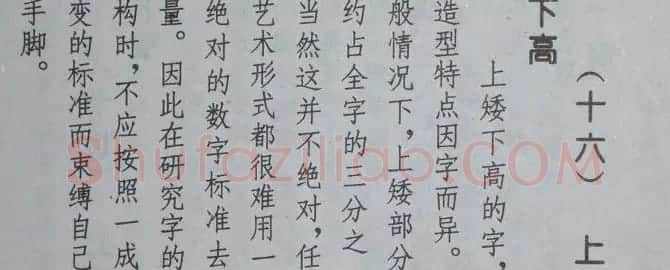 （十六）　上
下高
上矮下高的字，
造型特点因字而异。
般情况下，上矮部分
约占全字的三分之
当然这并不绝对，任
艺术形式都很难用一
绝对的数字标准去
量。因此在研究字的
构时，不应按照一成
变的标准而束缚自己
手脚。
Shufaziliao.COM